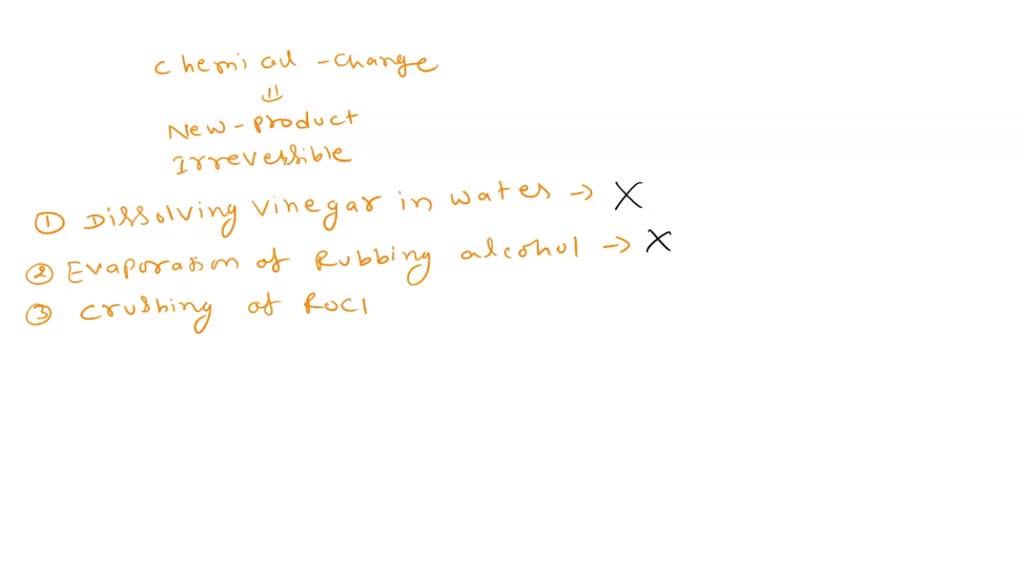 chemical - change
⇓
New - product
Irreverssible
① Dissolving vinegar in wates → X
② Evaporation of Rubbing alcohol → X
③ crushing of Roc